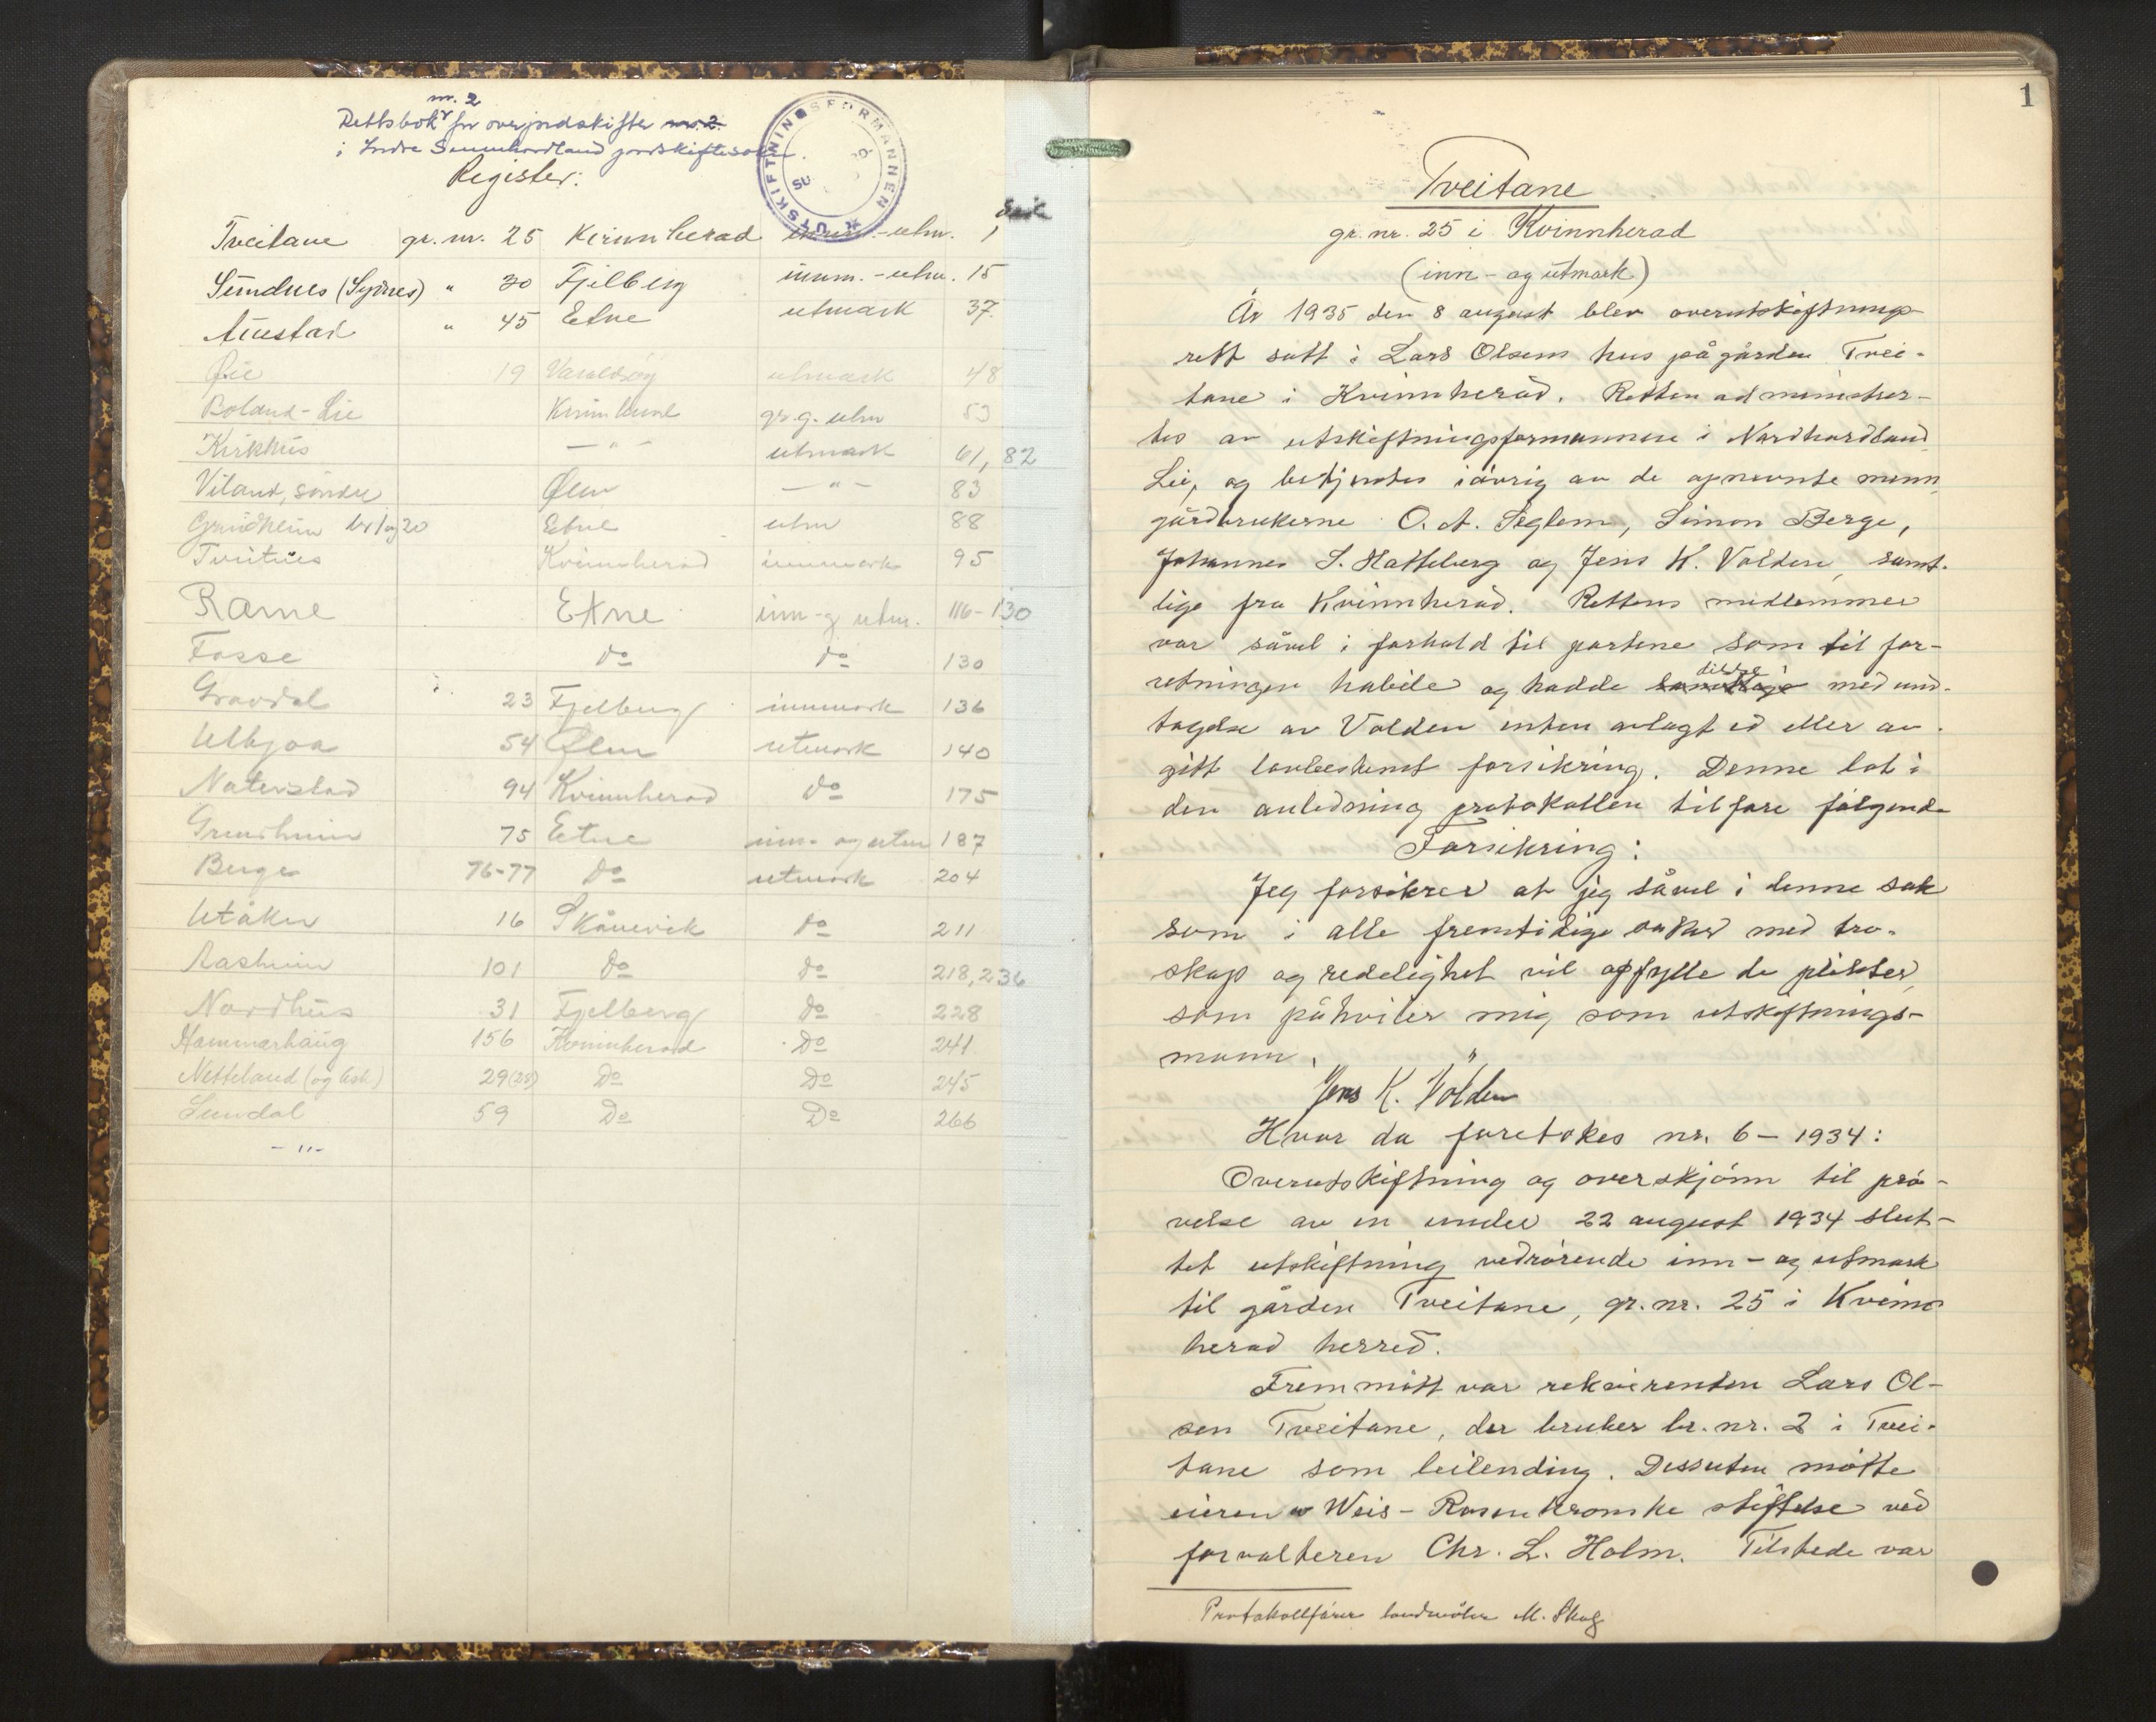 nr. 2
Rettsbok for overjordskifter nr. 2.
i Indre Sunnhordland jordskiftesokn.
Register:
UTSKIFTNINGSFORMANNEN
Side
Tveitane gr. nr. 25 Kvinnherad innm.-utm. 1
Sundnes (Synes) " 30 Fjelberg innm.-utm. 15
Austad " 45 Etne utmark 37.
Øie 19 Varaldsøy utmark 48
Boland-Lie Kvinnherad gr.g. utm 53
Kirkhus — " — utmark 61, 82
Viland, søndre Ølen — " — 83
Grindheim br 1 og 20 Etne utm 88
Tveitnes Kvinnherad innmark 95
Rame Etne inn- og utm. 116-130
Fosse do do 130
Gravdal 23 Fjelberg innmark 136
Ulbjoa 54 Ølen utmark 140
Naterstad 94 Kvinnherad do 175
Grindheim 75 Etne inn- og utm 187
Berge 76-77 Do utmark 204
Utåker 16 Skånevik do 211
Aasheim 101 do do 218, 236
Nordhus 31 Fjelberg do 228
Hammarhaug 156 Kvinnherad Do 241
Netteland (og Ask) 29(28) Do Do 245
Sundal 59 Do Do 266
- " -
1
Tveitane
gr. nr. 25 i Kvinnherad
(inn- og utmark)
År 1935 den 8 august blev overutskiftnings-
rett satt i Lars Olsens hus på gården Tvei-
tane i Kvinnherad. Retten administrer-
tes av utskiftningsformannen i Nordhordland
Lie, og betjentes iøvrig av de opnevnte menn
gårdbrukerne O. A. Seglem, Simon Berge,
Johannes S. Hatteberg og Jens K. Valden, samt-
lige fra Kvinnherad. Rettens medlemmer
var såvel i forhold til partene som til for-
retningen habile og hadde samtlige tidligere med und-
tagelse av Valden enten avlagt ed eller av-
gitt lovbestemt forsikring. Denne lot i
den anledning protokollen tilføre følgende
Forsikring:
Jeg forsikrer at jeg såvel i denne sak
som i alle fremtidige saker med tro-
skap og redelighet vil opfylle de plikter,
som påhviler mig som utskiftnings-
mann.
Jens K. Valden
Hvor da foretokes nr. 6 - 1934:
Overutskiftning og overskjønn til prø-
velse av en under 22 august 1934 slut-
tet utskiftning vedrørende inn- og utmark
til gården Tveitane, gr. nr. 25 i Kvinn
herad herred.
Fremmøtt var rekvirenten Lars Ol-
sen Tveitane, der bruker br. nr. 2 i Tvei-
tane som leilending. Dessuten møtte
eieren Weis-Rosenkronske stiftelse ved
forvalteren Chr. L. Holm. Tilstede var
Protokollfører landmåler M. Skog